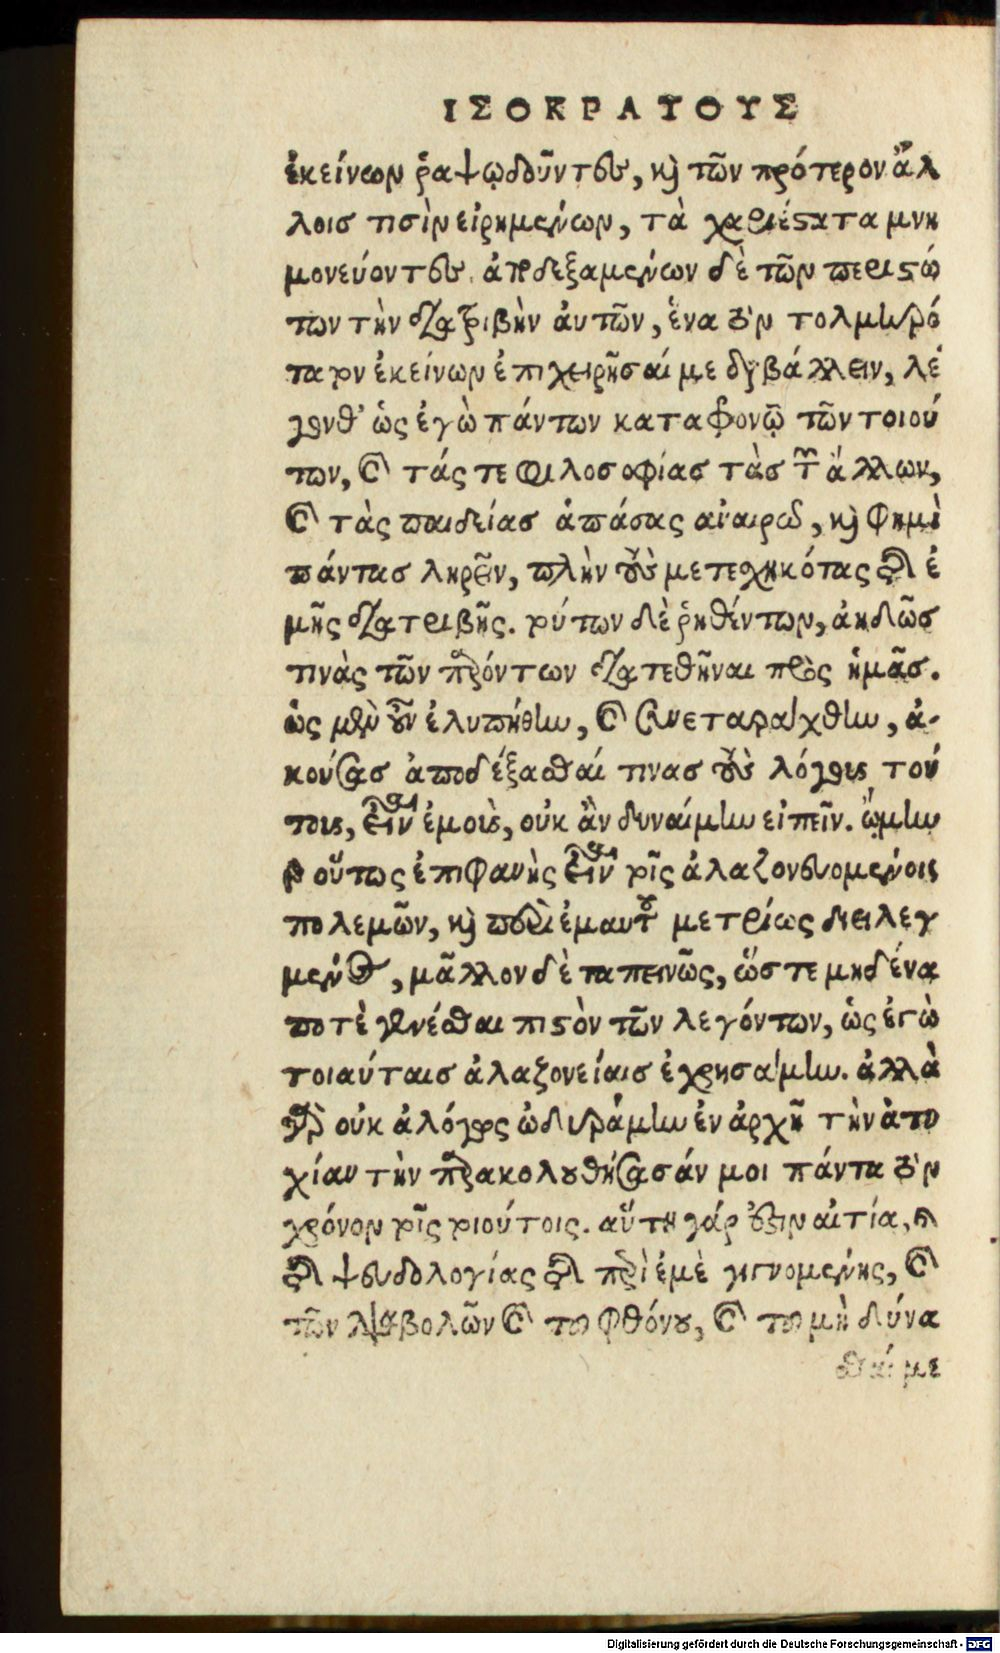 ΙΣΟΚΡΑΤΟΥΣ
ἐκείνων ῥαψῳδοῦντες, καὶ τῶν πρότερον ἄλ
λοις τισὶν εἰρημένων, τὰ χαριέστατα μνη
μονεύοντες. ἀποδεξαμένων δὲ τῶν περιστώ
των τὴν διατριβὴν ἀυτῶν, ἕνα τὸν τολμηρό
τατον ἐκείνων ἐπιχειρῆσαί με διαβάλλειν, λέ
γονθ' ὡς ἐγὼ πάντων καταφρονῶ τῶν τοιού
των, καὶ τάς τε φιλοσοφίας τὰς τῶν ἄλλων,
καὶ τὰς παιδείας ἁπάσας ἀναιρῶ, καὶ φημὶ
πάντας ληρεῖν, πλὴν τοὺς μετεσχηκότας τῆς ἐ
μῆς διατριβῆς. τούτων δὲ ῥηθέντων, ἀηδῶς
τινὰς τῶν παρόντων διατεθῆναι πρὸς ἡμᾶς.
ὡς μὲν οὖν ἐλυπήθην, καὶ συνεταράχθην, ἀ-
κούσας ἀποδέξασθαί τινας τοὺς λόγους τού
τους, εἶναι ἐμοὶς, οὐκ ἂν δυναίμην εἰπεῖν. ᾤμην
γὰρ οὕτως ἐπιφανὴς εἶναι τοῖς ἀλαζονευομένοις
πολεμῶν, καὶ περὶ ἐμαυτοῦ μετρίως διειλεγ
μένος, μᾶλλον δὲ ταπεινῶς, ὥστε μηδένα
ποτὲ γενέσθαι πιστὸν τῶν λεγόντων, ὡς ἐγὼ
τοιαύταις ἀλαζονείαις ἐχρησάμην. ἀλλὰ
γὰρ οὐκ ἀλόγως ὠδυράμην ἐν ἀρχῇ τὴν ἀτυ
χίαν τὴν παρακολουθήσασάν μοι πάντα τὸν
χρόνον τοῖς τοιούτοις. αὕτη γάρ ἐστιν αἰτία,
τῆς ψευδολογίας τῆς περὶ ἐμὲ γιγνομένης, καὶ
τῶν διαβολῶν καὶ τοῦ φθόνου, καὶ τοῦ μὴ δύνα
σθαί με
Digitalisierung gefördert durch die Deutsche Forschungsgemeinschaft - DFG